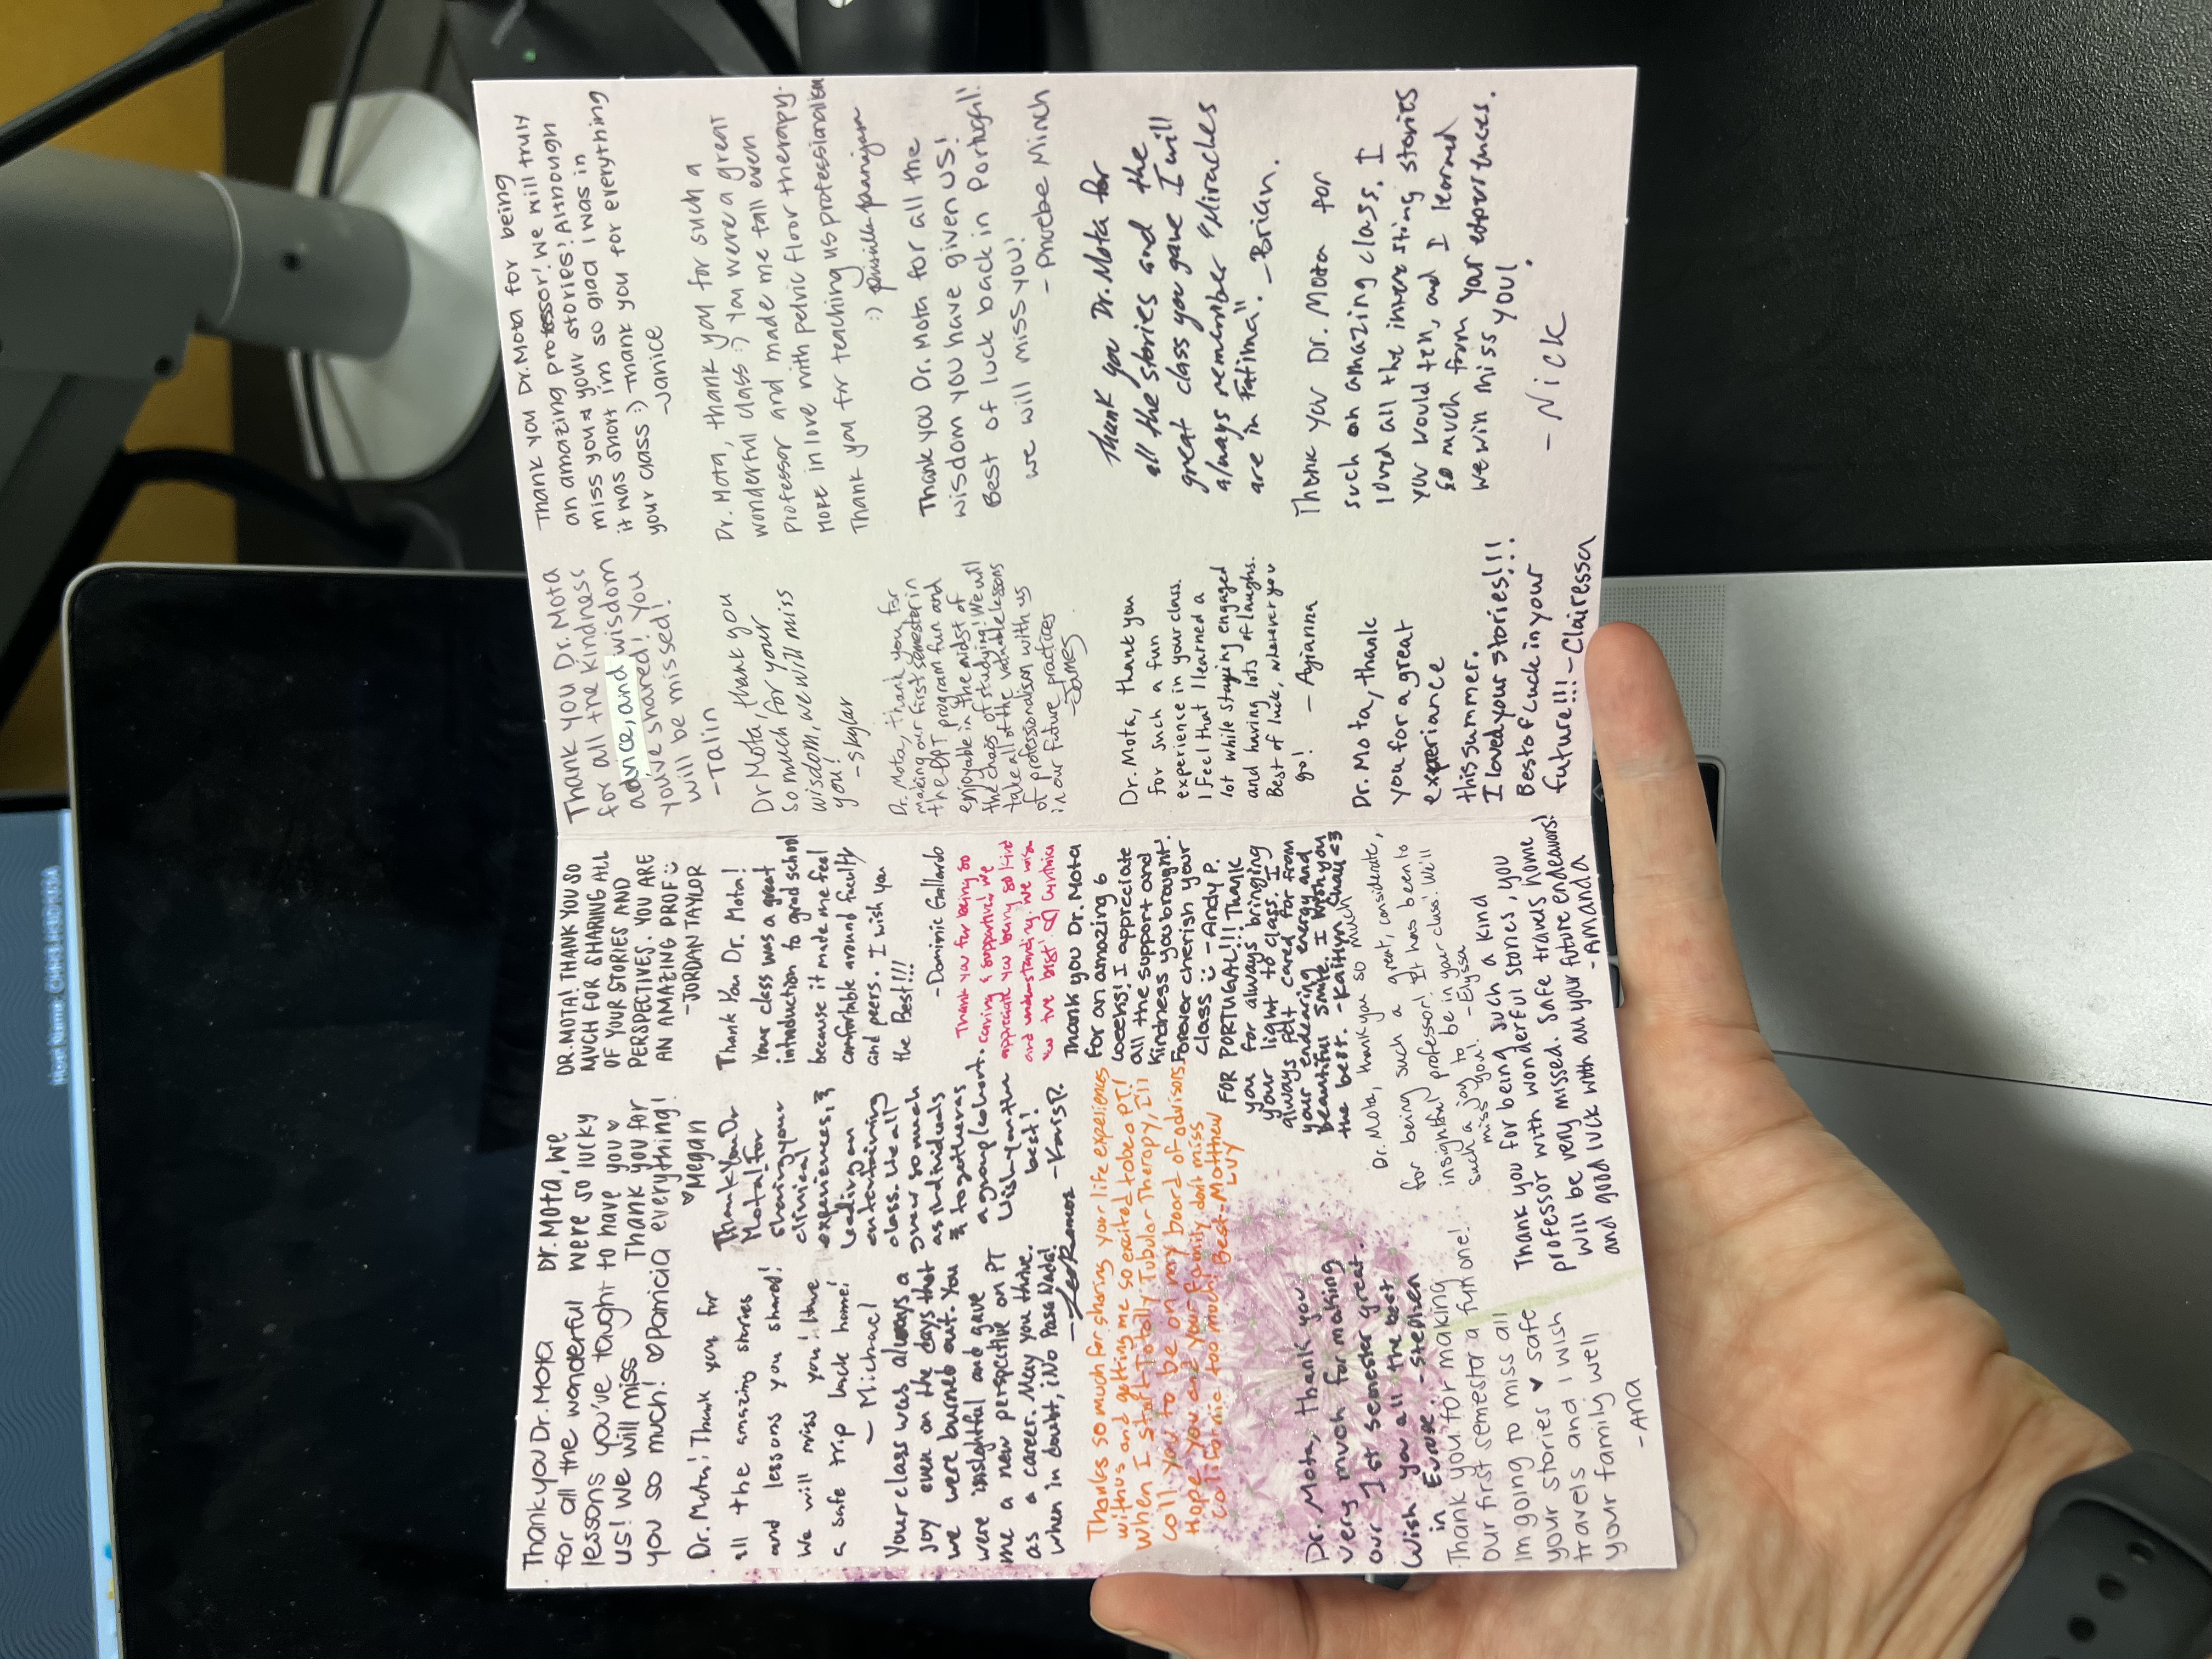 Thank you Dr. Mota
for all the wonderful
lessons you've taught
us! We will miss
you so much! ♡ Patricia
Dr. Mota, we
were so lucky
to have you ♥
Thank you for
everything!
♥ Megan
DR. MOTA! THANK YOU SO
MUCH FOR SHARING ALL
OF YOUR STORIES AND
PERSPECTIVES. YOU ARE
AN AMAZING PROF
-JORDAN TAYLOR
Dr. Mota! Thank you for
all the amazing stories
and lessons you shared!
We will miss you! Have
a safe trip back home!
- Michael
Thank You Dr
Mota! For
sharing your
clinical
experiences, &
leading an
entertaining
class. We all
grew so much
as individuals
& together as
a group/cohort.
Wish you the
best!
-Karis R.
Thank You Dr. Mota!
Your class was a great
introduction to grad school
because it made me feel
comfortable around faculty
and peers. I wish you
the Best!!!!
-Dominic Gallardo
Your class was always a
joy even on the days that
we were burned out. You
were insightful and gave
me a new perspective on PT
as a career. May you thrive.
When in doubt, ¡No Pasa Nada!
Ramos
Thank you for being so
caring & supportive! We
appreciate you being so kind
and understanding. We wish
you the best! Cynthia
Thank you Dr. Mota
for an amazing 6
weeks! I appreciate
all the support and
kindness you brought!
Forever cherish your
class - Andy P.
Thanks so much for sharing your life experiences
with us and getting me so excited to be a PT!
When I start Totally Tubular Therapy, I'll
call you to be on my board of advisors
Hope you and your family don't miss
California too much! Best - Matthew
Luy
FOR PORTUGAL!!! Thank
you for always bringing
your light to class. I
always felt cared for from
your endearing energy and
beautiful smile. I wish you
the best. -Kaitlyn Chau <3
Dr. Mota, thank you so much
for being such a great, considerate,
insightful professor! It has been
such a joy to be in your class! We'll
miss you! - Elyssa
Dr. Mota, thank you
very much for making
our 1st semester great.
Wish you all the best
in Europe. - Stephen
Thank you for making
our first semester a fun one!
Im going to miss all
your stories ♥ safe
travels and I wish
your family well
- Ana
Thank you for being such a kind
professor with wonderful stories, you
will be very missed. Safe travels home
and good luck with all your future endeavors!
- Amanda
Thank you Dr. Mota
for all the kindness
advice, and wisdom
you've shared! You
will be missed!
-Talin
Dr Mota, thank you
so much for your
wisdom, we will miss
you!
-Skylar
Dr. Mota, thank you for
making our first semester in
the DPT program fun and
enjoyable in the midst of
the chaos of studying! We will
take all of the valuable lessons
of professionalism with us
in our future practices
-James
Dr. Mota, thank you
for such a fun
experience in your class.
I feel that I learned a
lot while staying engaged
and having lots of laughs.
Best of luck, wherever you
go! - Ayianna
Dr. Mota, thank
you for a great
experiance
this summer.
I loved your stories!!!
Best of Luck in your
future!!! -Clairessa
Thank you Dr. Mota for being
an amazing professor! We will truly
miss you & your stories! Although
it was short im so glad I was in
your class :) Thank you for everything
-Janice
Dr. Mota, thank you for such a
wonderful class :) You were a great
professor and made me fall even
more in love with pelvic floor therapy.
Thank you for teaching us professionalism
:)
Thank you Dr. Mota for all the
wisdom you have given us!
Best of luck back in Portugal!
we will miss you!
- Phoebe Minch
Thank you Dr. Mota for
all the stories and the
great class you gave I will
always remember "Miracles
are in Fatima". -Brian.
Thank you Dr. Mota for
such an amazing class. I
loved all the interesting stories
you would tell, and I learned
so much from your experiences.
we will miss you!
- Nick